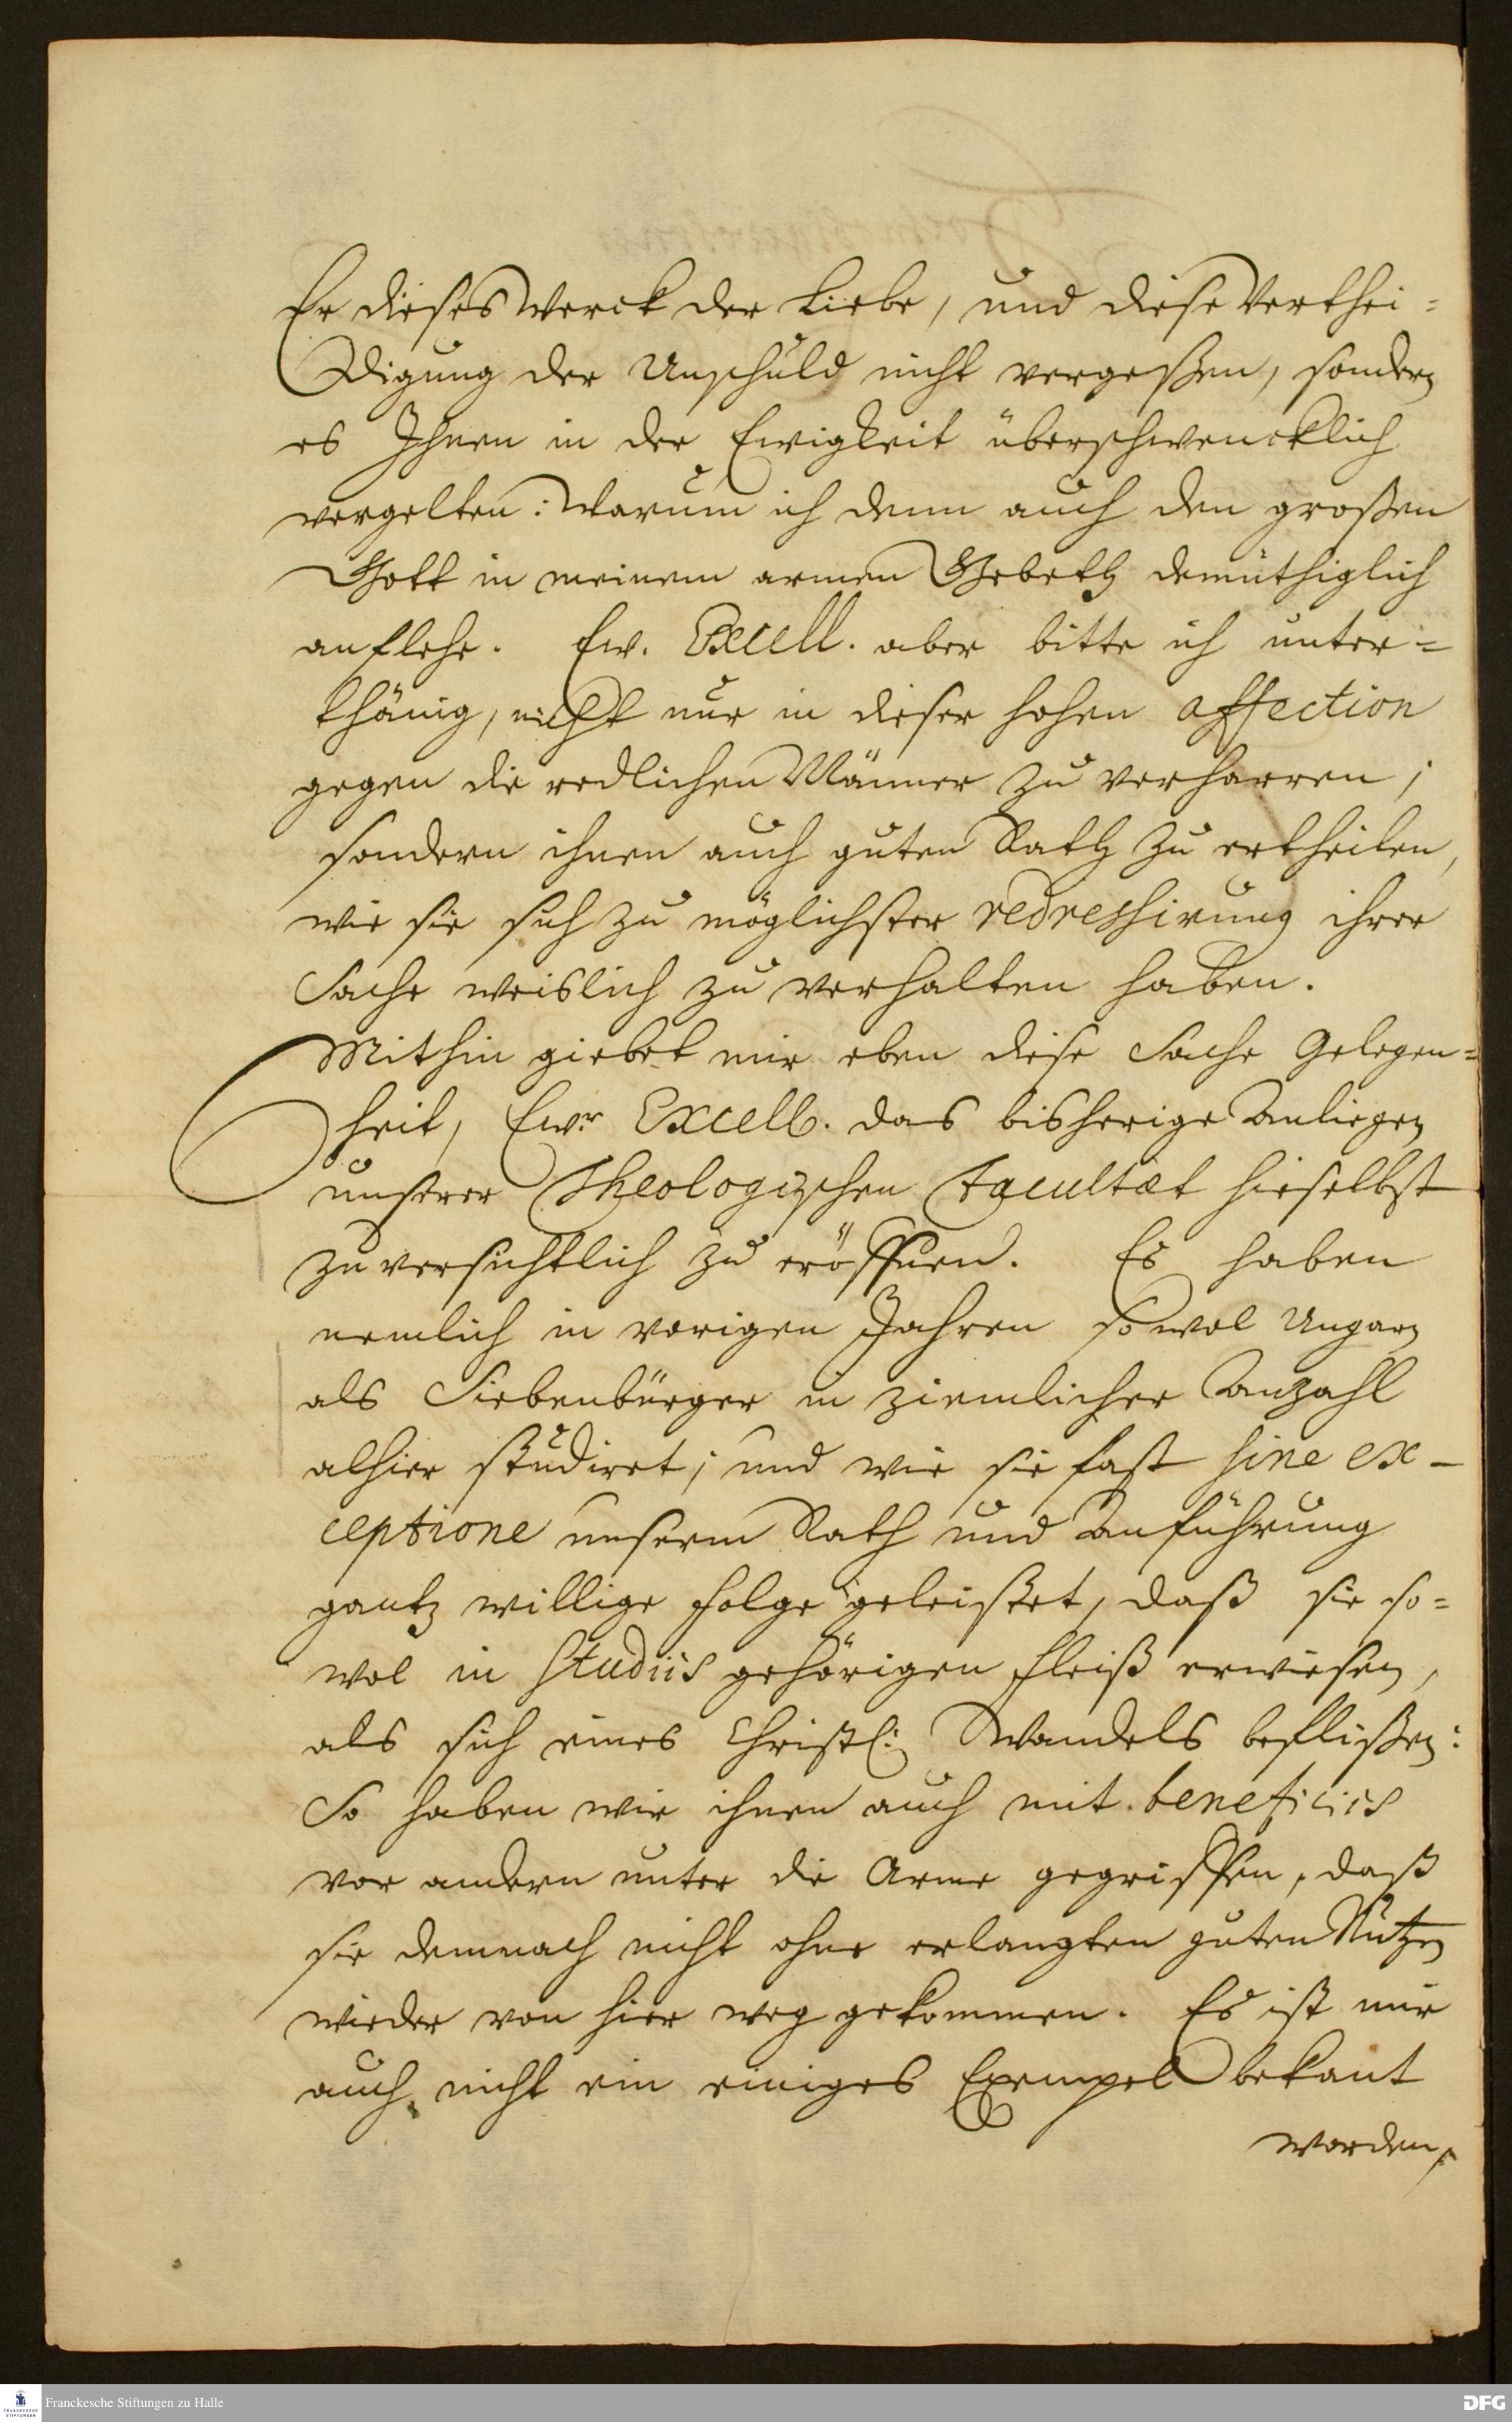 Er dieses Werck der Liebe, und diese Verthei=
digung der Unschuld nicht vergeßen, sondern
es Ihnen in der Ewigkeit überschwencklich
vergelten: Warum ich denn auch den großen
Gott in meinem armen Gebeth demüthiglich
anflehe. Ew. Excell. aber bitte ich unter=
thänig, nicht nur in dieser hohen affection
gegen die redlichen Männer zu verharren;
sondern ihnen auch guten Rath zu ertheilen,
wie sie sich zu möglichster redressirung ihrer
Sache weislich zu verhalten haben.
Mithin giebet mir eben diese Sache Gelegen=
heit, Ewr Excell. das bisherige Anliegen
unserer Theologischen Facultæt hieselbst
zuversichtlich zu eröffnen. Es haben
nemlich in vorigen Jahren so wol Ungarn
als Siebenbürger in ziemlicher Anzahl
alhier studiret; und wie sie fast sine ex-
ceptione unserm Rath und Anführung
gantz willige Folge geleistet, daß sie so=
wol in studiis gehörigen Fleiß erwiesen,
als sich eines Christl: Wandels beflißen:
So haben wir ihnen auch mit beneficiis
vor andern unter die Arme gegriffen, daß
sie demnach nicht ohne erlangten guten Nutzen
wieder von hier weg gekommen. Es ist mir
auch nicht ein einiges Exempel bekant
worden,
Franckesche Stiftungen zu Halle
DFG